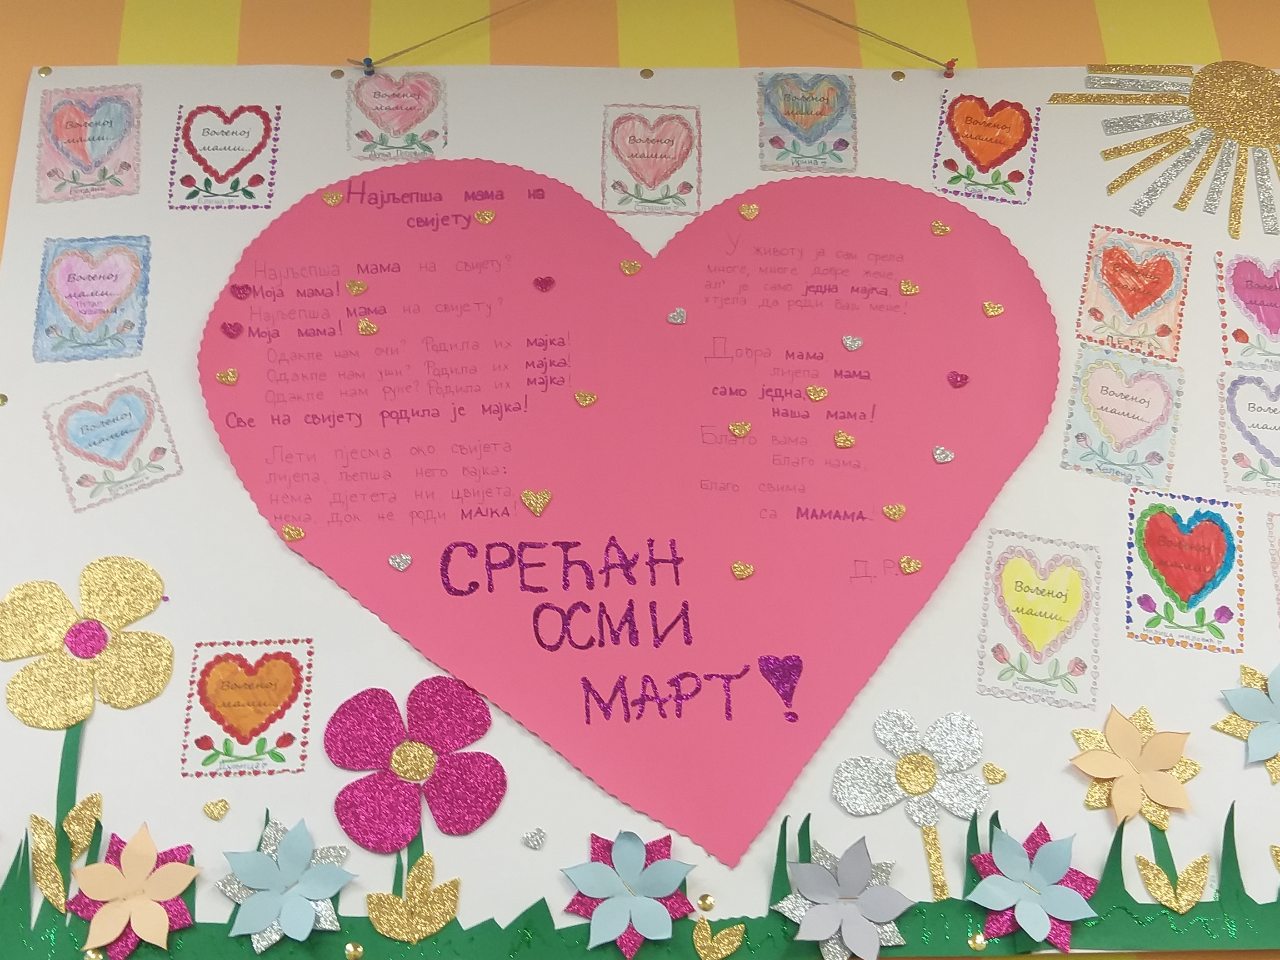 Најљепша мама на
свијету
Најљепша мама на свијету?
Моја мама!
Најљепша мама на свијету?
Моја мама!
Одакле нам очи? Родила их мајка!
Одакле нам уши? Родила их мајка!
Одакле нам руке? Родила их мајка!
Све на свијету родила је мајка!
Лети пјесма око свијета
лијепа, љепша него бајка:
нема дјетета ни цвијета,
нема, док не роди МАЈКА!
У животу ја сам срела
много, много добре жене,
ал' је само једна мајка,
хтјела да роди баш мене!
Добра мама,
лијепа мама
само једна,
наша мама!
Благо вама
Благо нама,
Благо свима
са МАМАМА!
Д. Р.
СРЕЋАН
ОСМИ
МАРТ!
Вољеној
мами...
Вољеној
мами...
Вољеној
мами...
Вољеној
мами...
Вољеној
мами...
Ирина
Вољеној
мами...
Вољеној
мами...
Вољеној
мами...
Вољеној
мами...
ПЕТАР
Вољеној
мами...
Вољеној
мами...
Вољеној
мами...
Вољеној
мами...
Вољеној
мами...